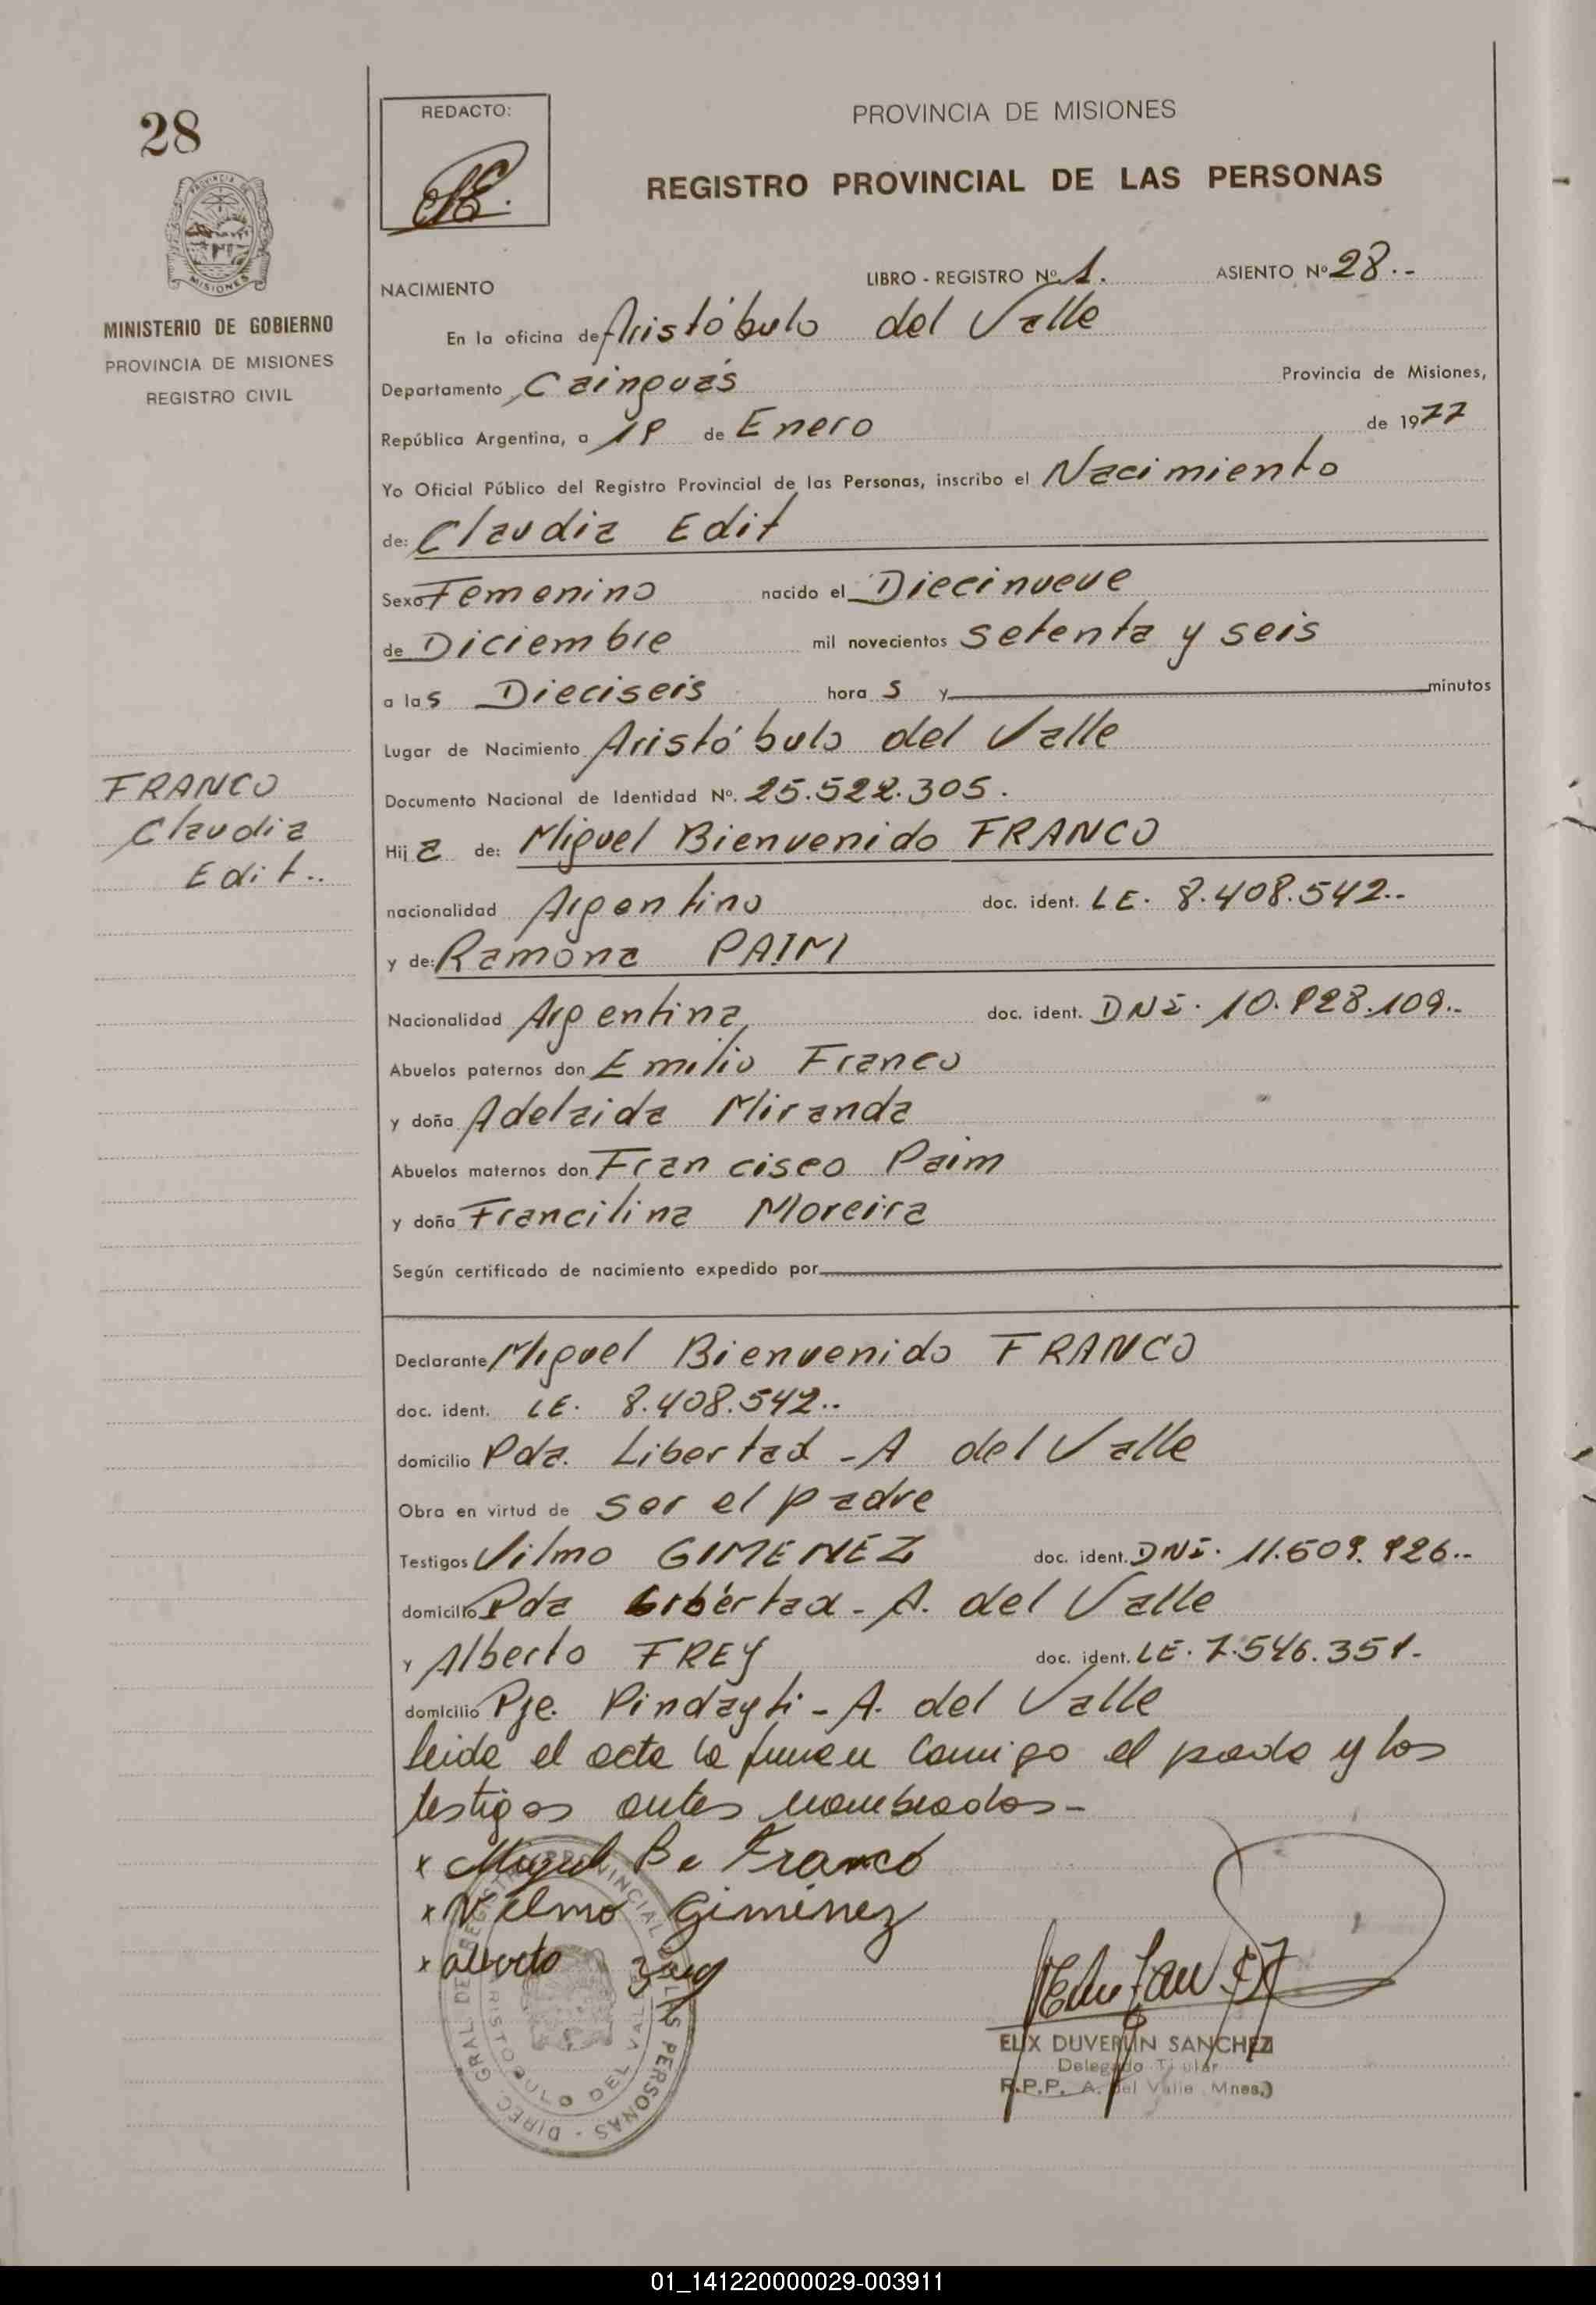 28
MINISTERIO DE GOBIERNO
PROVINCIA DE MISIONES
REGISTRO CIVIL
FRANCO
Claudia
Edit..
REDACTO:
PROVINCIA DE MISIONES
REGISTRO PROVINCIAL DE LAS PERSONAS
NACIMIENTO LIBRO - REGISTRO Nº 1. ASIENTO Nº 28.-
En la oficina de Aristóbulo del Valle
Departamento Cainguás Provincia de Misiones,
República Argentina, a 19 de Enero de 1977
Yo Oficial Público del Registro Provincial de las Personas, inscribo el Nacimiento
de: Claudia Edit
Sexo Femenino nacido el Diecinueve
de Diciembre mil novecientos setenta y seis
a las Dieciseis hora s y minutos
Lugar de Nacimiento Aristóbulo del Valle
Documento Nacional de Identidad Nº. 25.522.305.
Hija de: Miguel Bienvenido FRANCO
nacionalidad Argentino doc. ident. LE. 8.408.542..
y de: Ramona PAIM
Nacionalidad Argentina doc. ident. DNI. 10.928.109..
Abuelos paternos don Emilio Franco
y doña Adelaida Miranda
Abuelos maternos don Francisco Paim
y doña Francilina Moreira
Según certificado de nacimiento expedido por
Declarante Miguel Bienvenido FRANCO
doc. ident. LE. 8.408.542..
domicilio Pda. Libertad - A del Valle
Obra en virtud de ser el padre
Testigos Vilmo GIMENEZ doc. ident. DNI. 11.609.926..
domicilio Pda Libertad - A. del Valle
y Alberto FREY doc. ident. LE. 7.546.351.
domicilio Pje. Pindayti - A. del Valle
leida el acta la firman conmigo el padre y los
testigos antes nombrados-
x Miguel B. Franco
x Vilmo Gimenez
x alberto
DIREC. GRAL DE REGISTRO PROVINCIAL DE LAS PERSONAS -
ARISTOBULO DEL VALLE
ELIX DUVERLIN SANCHEZ
Delegado Titular
R.P.P. A. del Valle (Mnes.)
01_141220000029-003911